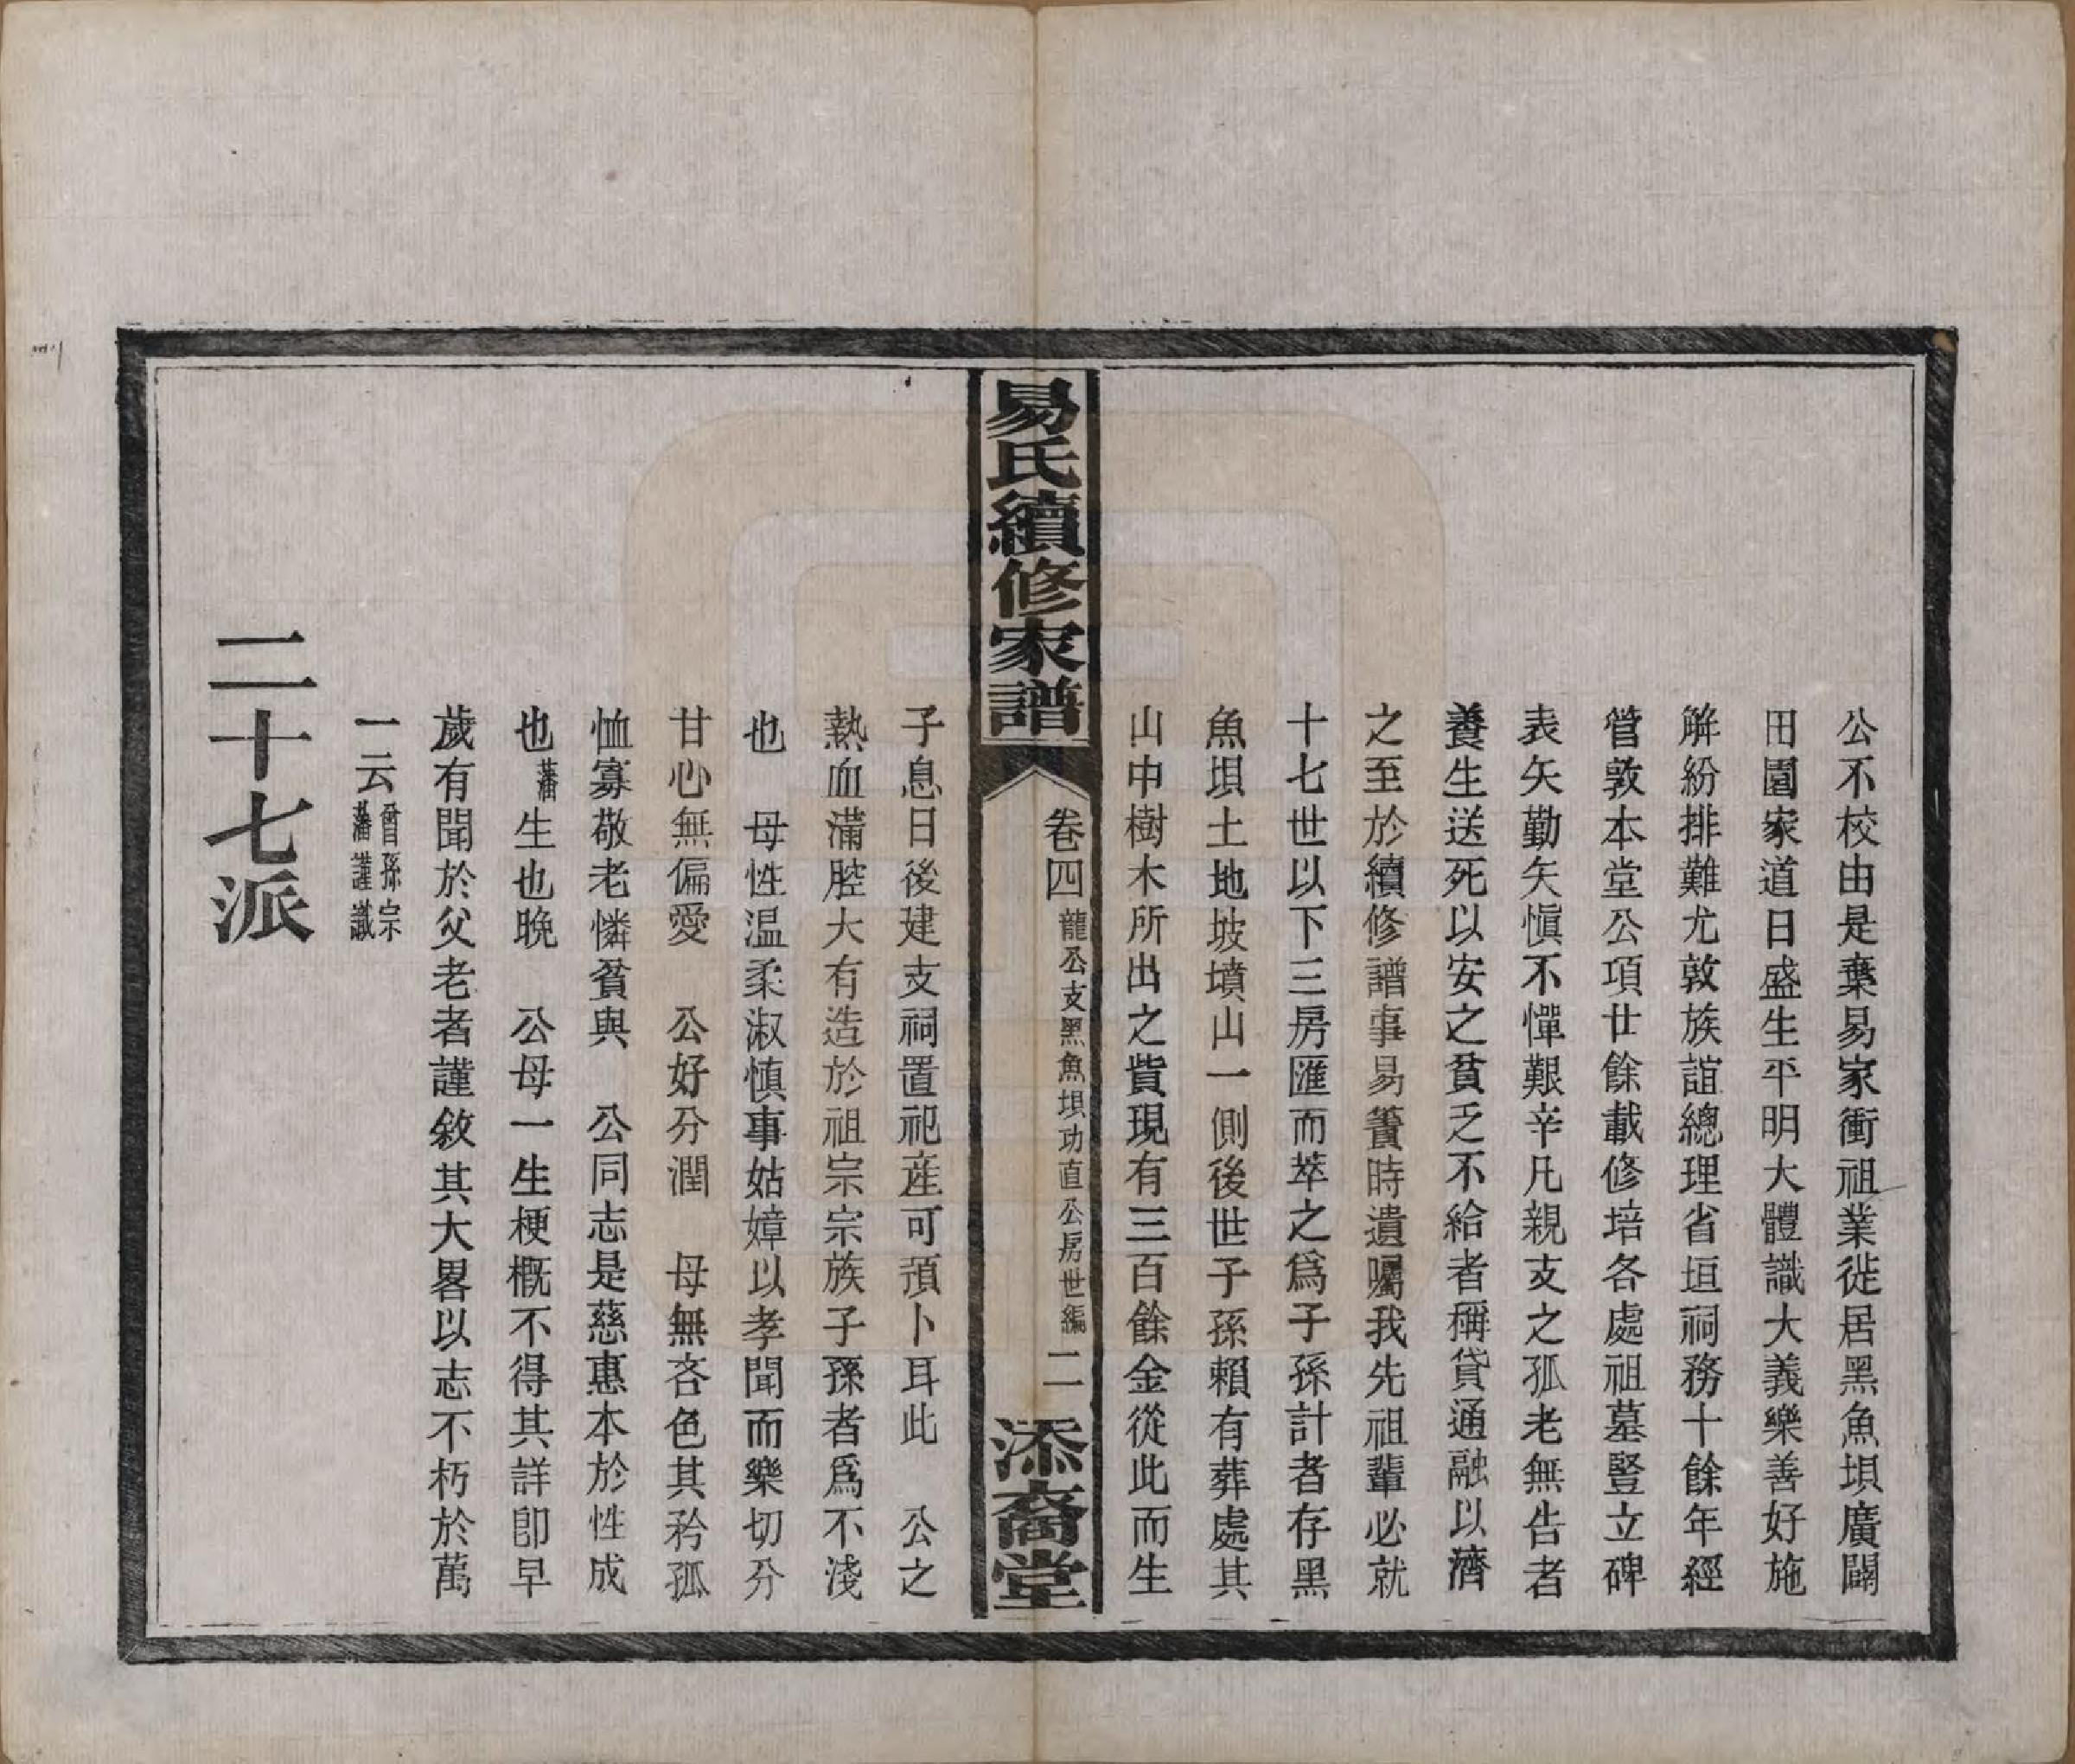 公不校由是棄易家衝祖業徙居黑魚垻廣闢
田園家道日盛生平明大體識大義樂善好施
解紛排難尤敦族誼總理省垣祠務十餘年經
管敦本堂公項廿餘載修培各處祖墓豎立碑
表矢勤矢愼不憚艱辛凡親支之孤老無告者
養生送死以安之貧乏不給者稱貸通融以濟
之至於續修譜事易簀時遺囑我先祖輩必就
十七世以下三房匯而萃之爲子孫計者存黑
魚垻土地坡墳山一側後世子孫賴有葬處其
山中樹木所出之貲現有三百餘金從此而生
易氏續修家譜
卷四龍公支黑魚垻功直公房世編 二
添裔堂
子息日後建支祠置祀産可預卜耳此 公之
熱血滿腔大有造於祖宗宗族子孫者爲不淺
也 母性温柔淑慎事姑嫜以孝聞而樂切分
甘心無偏愛 公好分潤 母無吝色其矜孤
恤寡敬老憐貧與 公同志是慈惠本於性成
也藩生也晚 公母一生梗概不得其詳卽早
歲有聞於父老者謹敘其大畧以志不朽於萬
一云曾孫宗藩謹識
二十七派